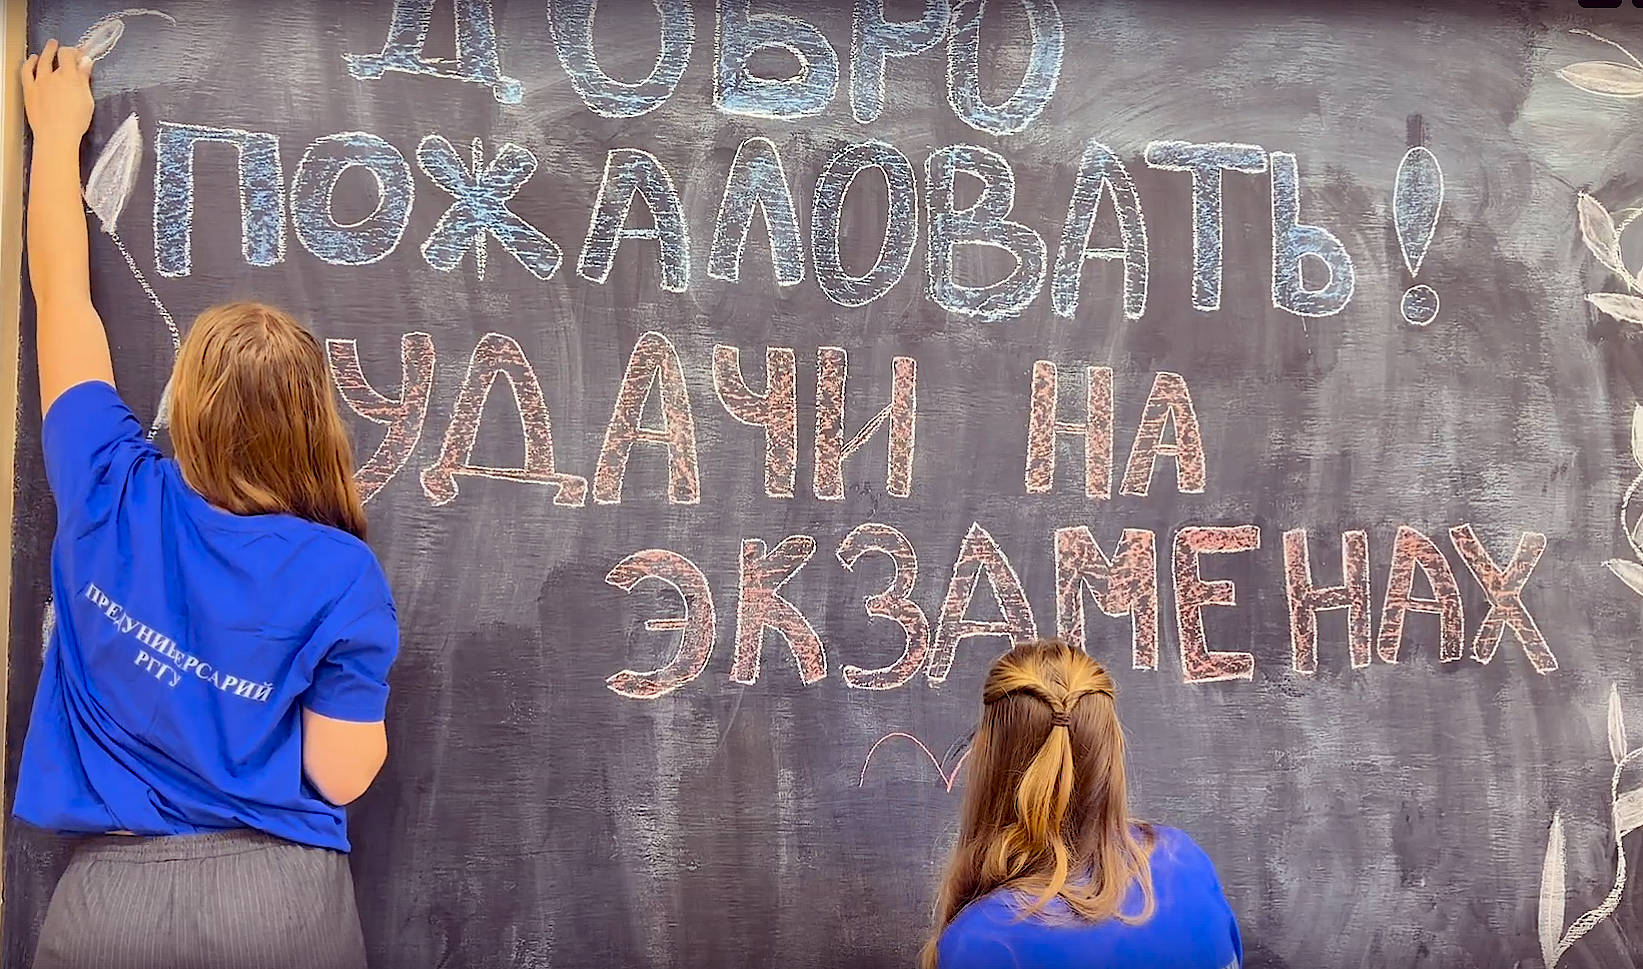 ДОБРО
ПОЖАЛОВАТЬ!
УДАЧИ НА
ЭКЗАМЕНАХ
ПРЕДУНИВЕРСАРИЙ
РГГУ